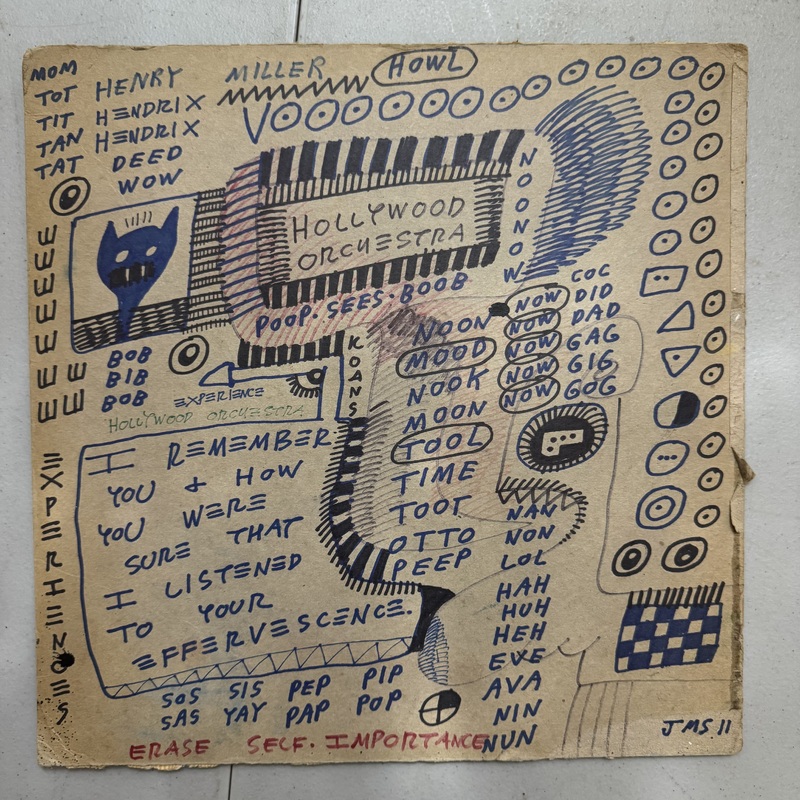 MOM
TOT
TIT
TAN
TAT
HENRY MILLER HOWL
HENDRIX
HENDRIX
DEED
WOW
VOOOOOOOOO
HOLLYWOOD
ORCHESTRA
NOONOW
POOP·SEES·BOOB
EEEEEEEE
EE
BOB
BIB
BOB
EXPERIENCE
HOLLYWOOD ORCHESTRA
KOANS
NOON
MOOD
NOOK
MOON
TOOL
TIME
TOOT
OTTO
PEEP
NOW
NOW
NOW
NOW
NOW
COC
DID
DAD
GAG
GIG
GOG
I REMEMBER
YOU & HOW
YOU WERE
SURE THAT
I LISTENED
TO YOUR
EFFERVESCENCE.
EXPERIENCES
NAN
NON
LOL
HAH
HUH
HEH
EVE
AVA
NIN
NUN
SOS SIS PEP PIP
SAS YAY PAP POP
ERASE SELF·IMPORTANCE
JMS 11